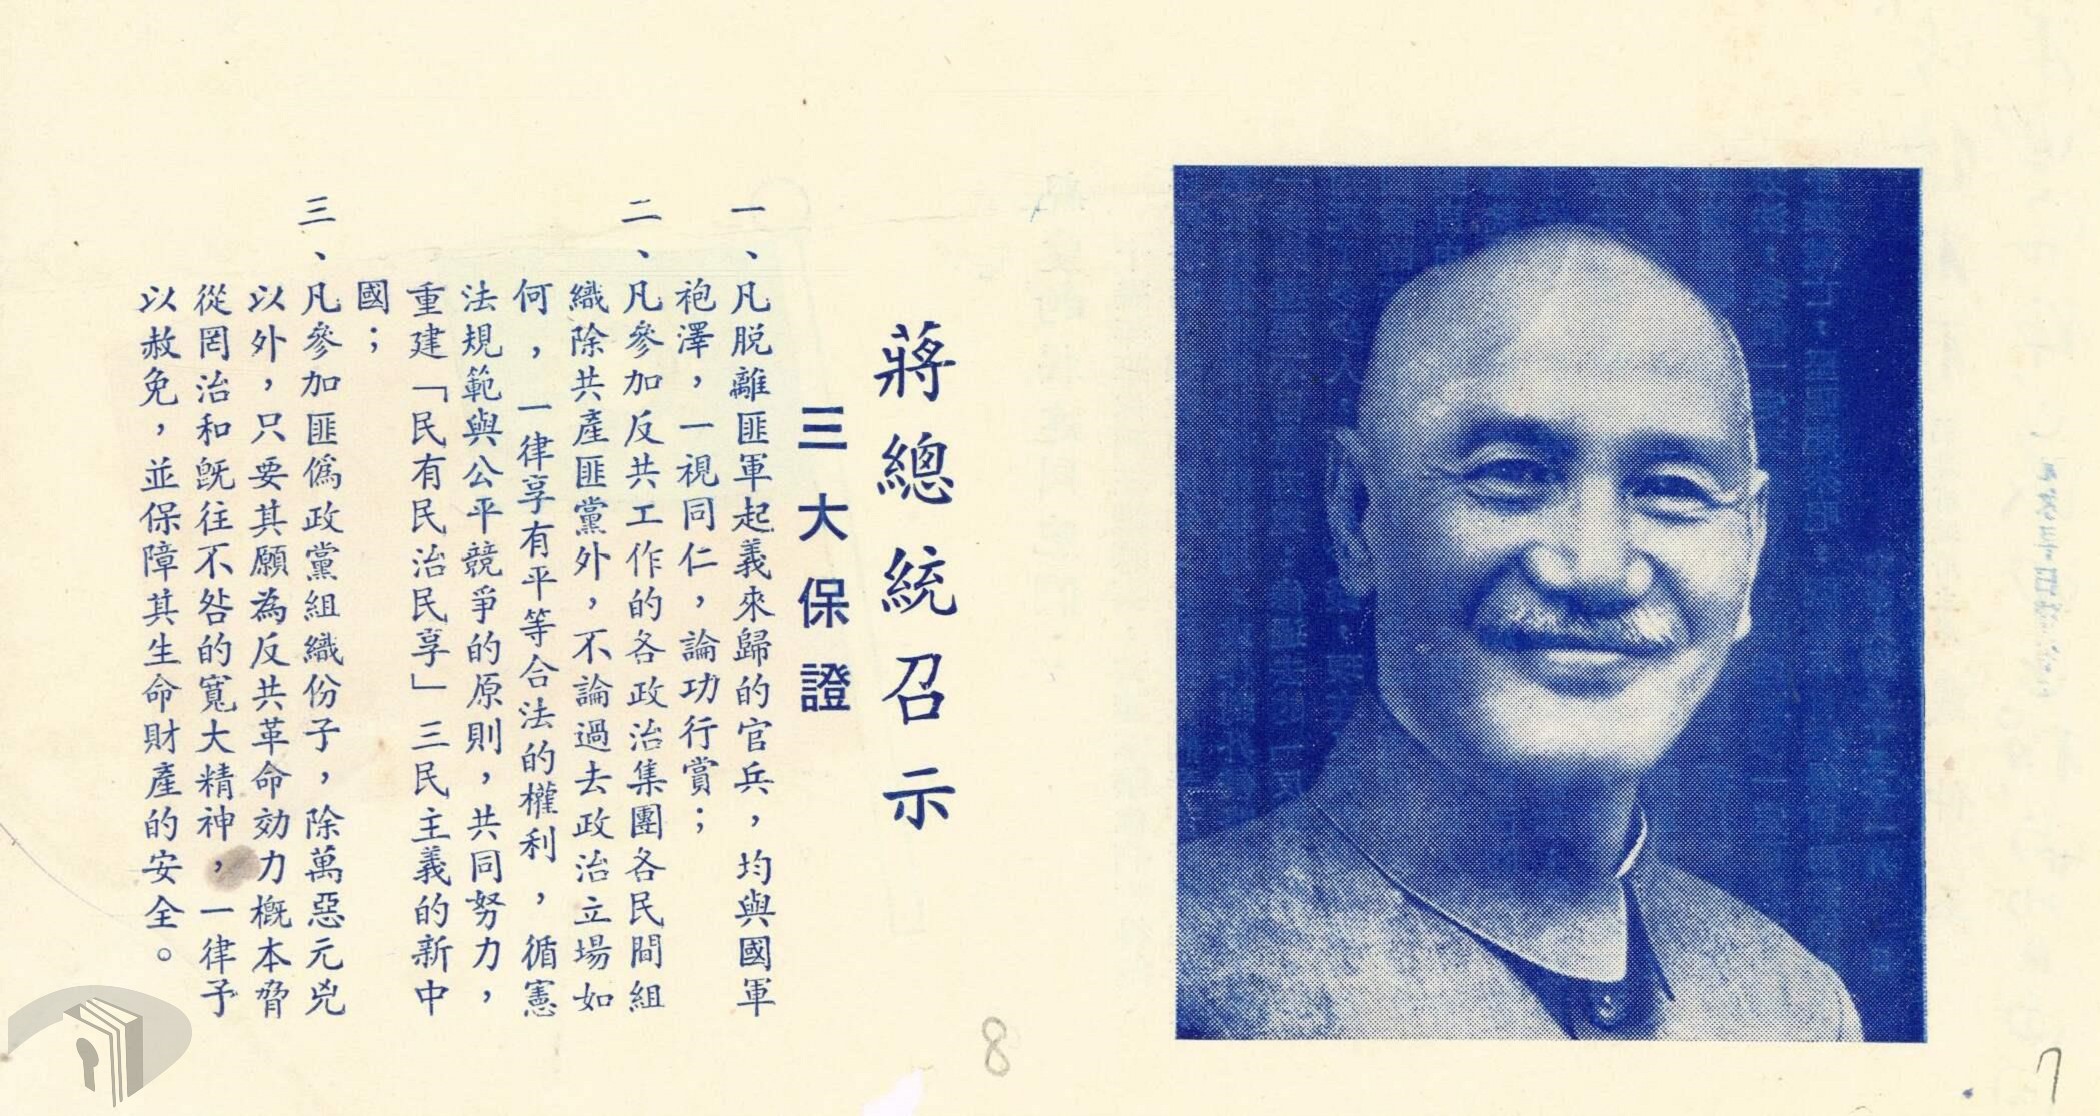 蔣總統召示
三大保證
一、凡脱離匪軍起義來歸的官兵，均與國軍
袍澤，一視同仁，論功行賞；
二、凡參加反共工作的各政治集團各民間組
織除共產匪黨外，不論過去政治立場如
何，一律享有平等合法的權利，循憲
法規範與公平競爭的原則，共同努力，
重建「民有民治民享」三民主義的新中
國；
三、凡參加匪僞政黨組織份子，除萬惡元兇
以外，只要其願為反共革命効力概本脅
從罔治和旣往不咎的寬大精神，一律予
以赦免，並保障其生命財產的安全。
8
7